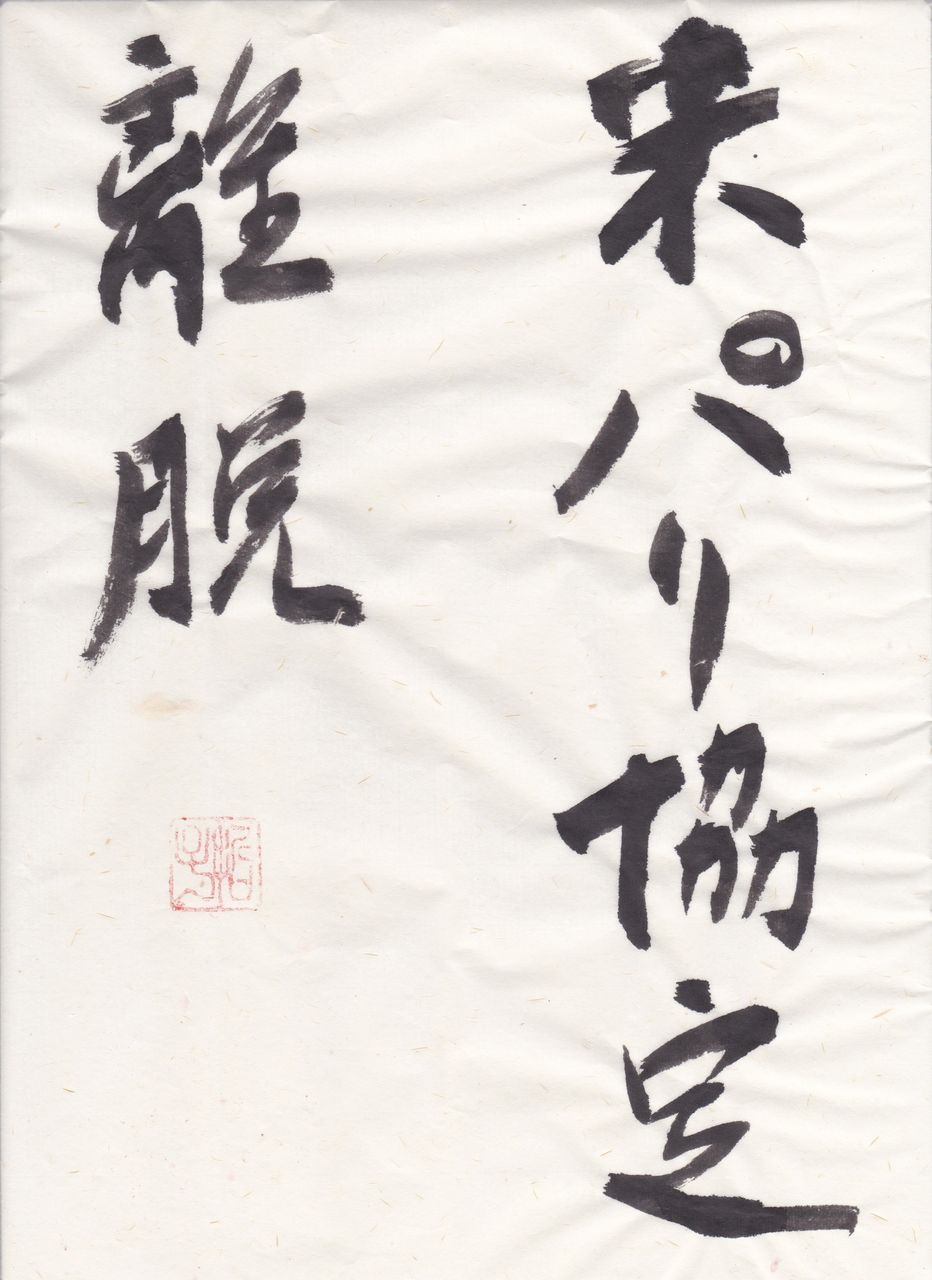 米パリ協定
離脱